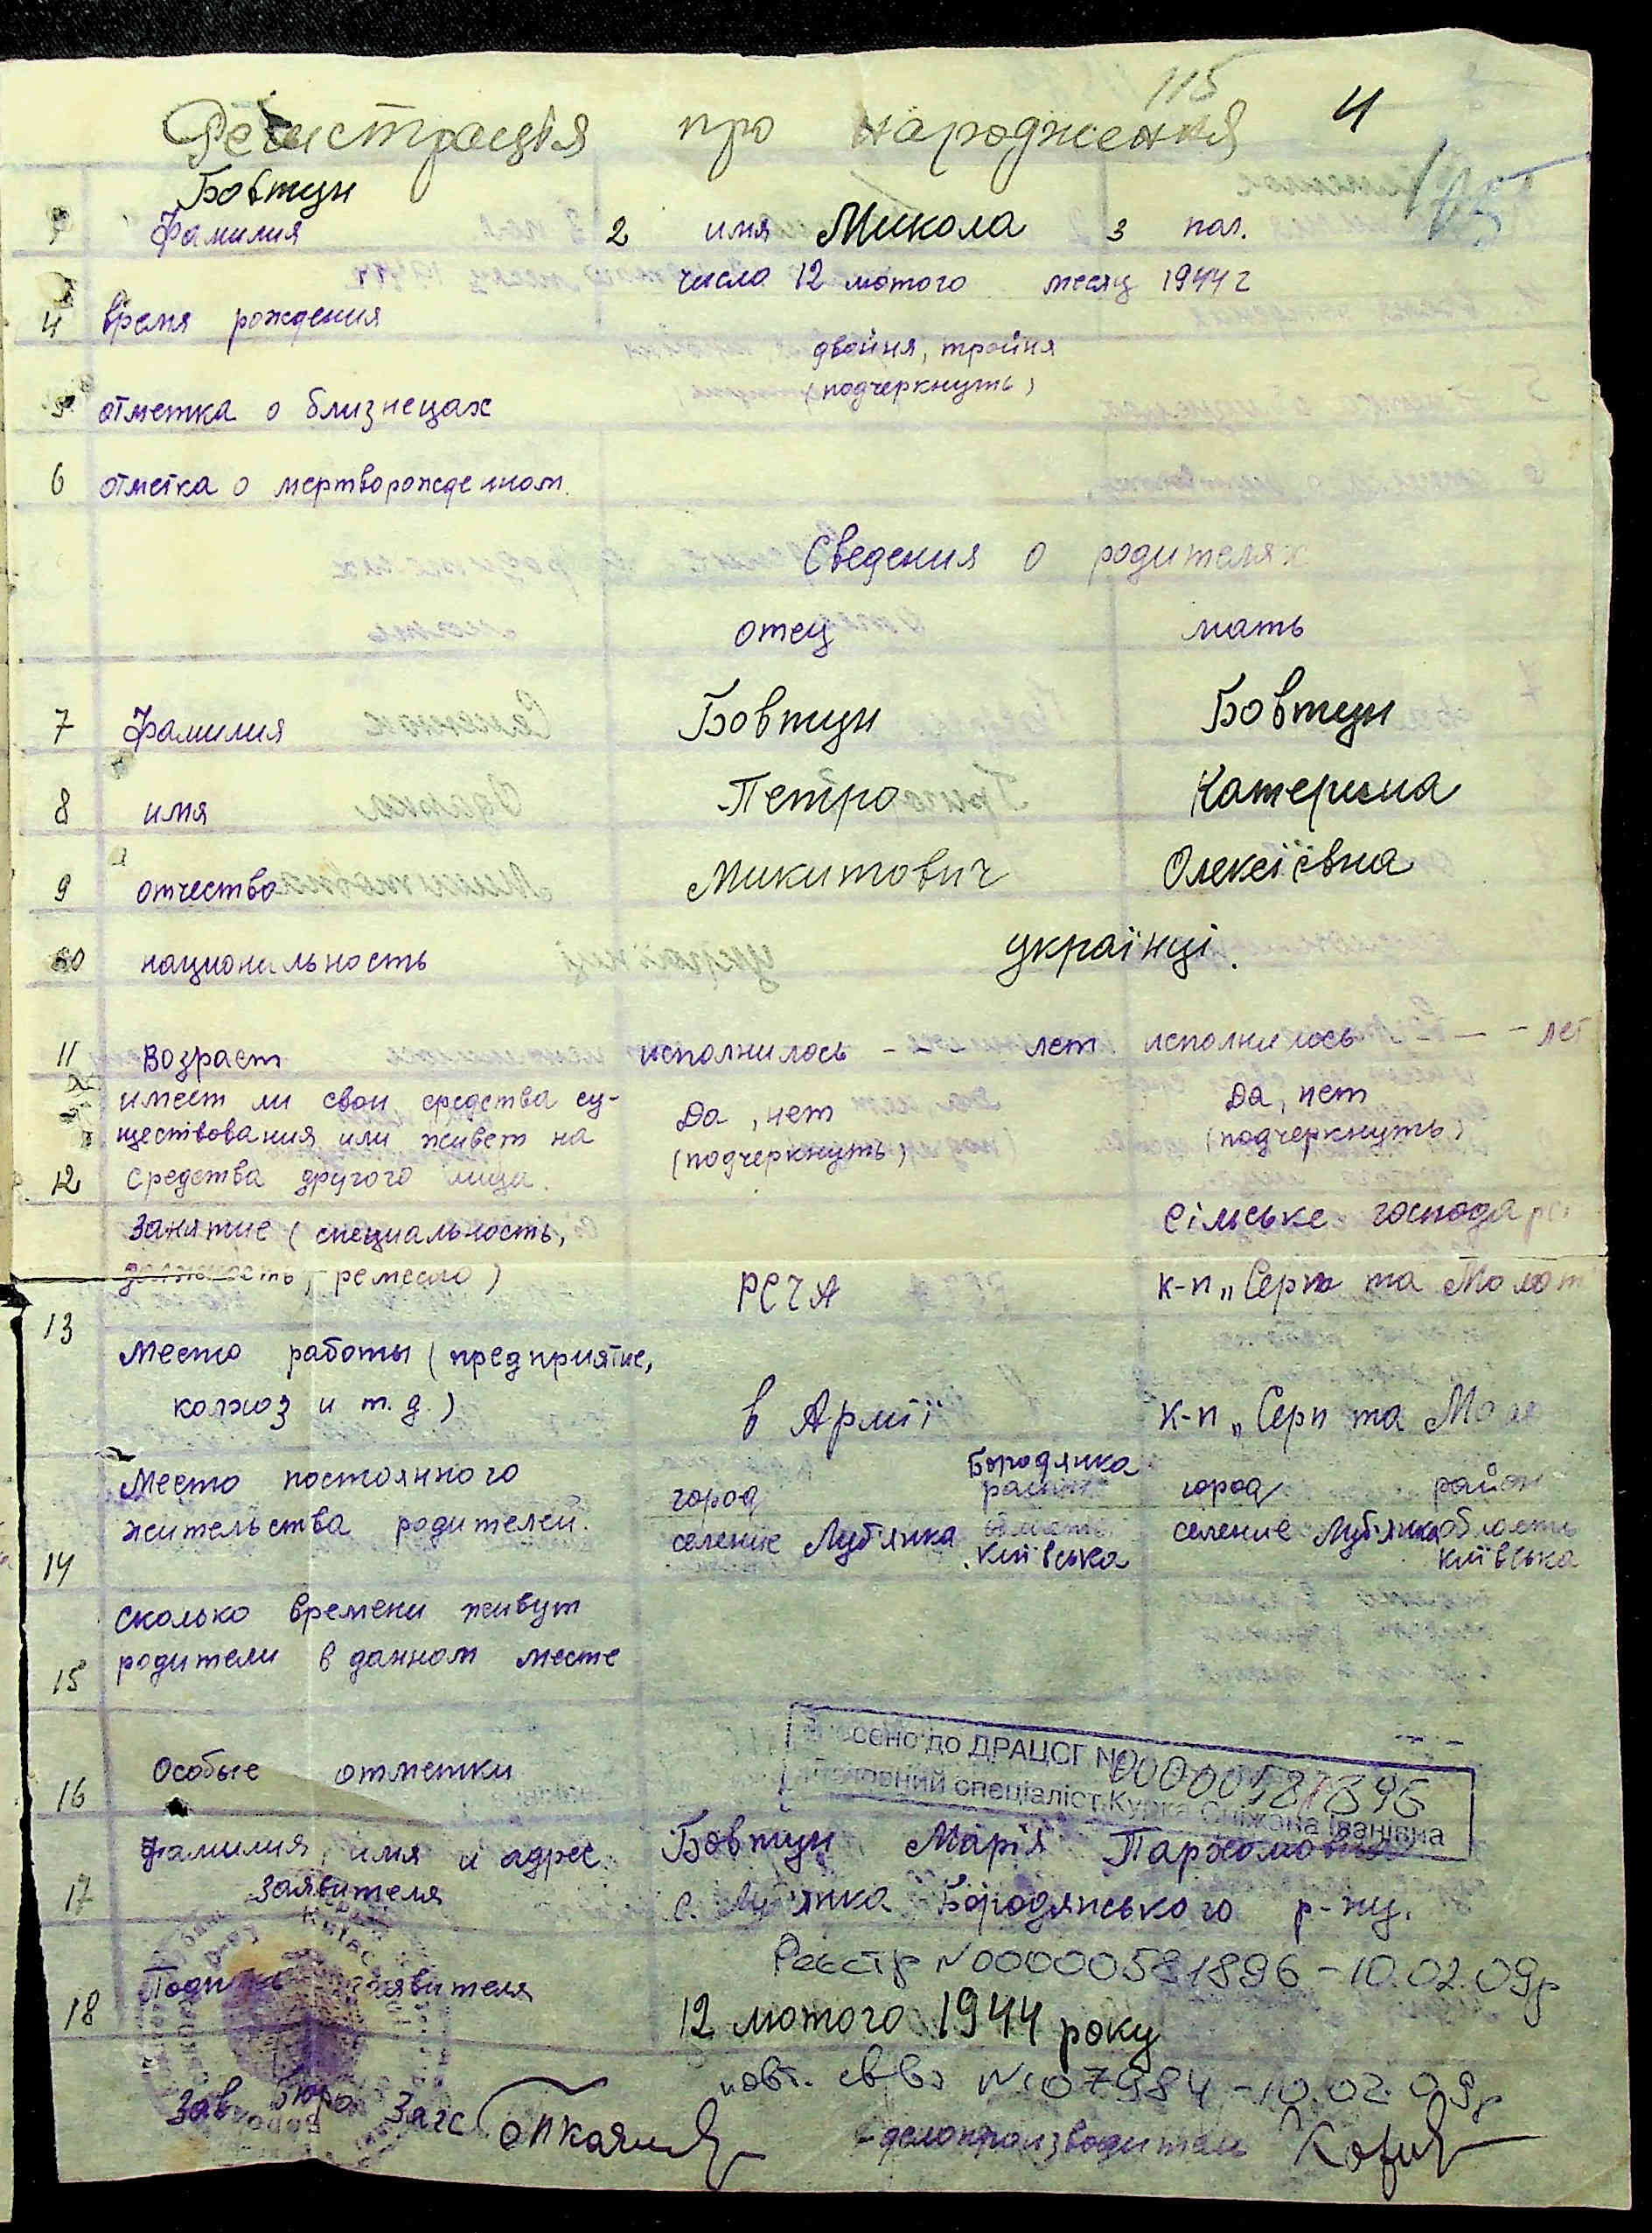 115 4
Регистрація про народження
105
Бовтун
1 Фамилия 2 имя Микола 3 пол.
число 12 лютого месяц 1944 г
4 время рождения
двойня, тройня
5 отметка о близнецах (подчеркнуть)
6 отметка о мертворожденном.
Сведения о родителях
отец мать
7 Фамилия Бовтун Бовтун
8 имя Петро Катерина
9 отчество Микитович Олексіївна
10 национальность українці.
11 Возраст исполнилось - - лет исполнилось - - - лет
имеет ли свои средства су- Да, нет Да, нет
ществования или живет на (подчеркнуть) (подчеркнуть)
12 средства другого лица.
Занятие (специальность, сільське господарс
должность, ремесло) РСЧА к-п „Серп та Молот
13
Место работы (предприятие,
колхоз и т.д.) в Армії к-п „Серп та Мол
Место постоянного город Бородянка район город район
жительства родителей. селение Луб'янка область селение Луб'янка область
14 Київська Київська
Сколько времени живут
15 родители в данном месте
16 Особые отметки
сено до ДРАЦСГ №00000581896
спеціаліст Курка Сніжана Іванівна
Фамилия, имя и адрес Бовтун Марія Пархомовна
17 заявителя с. Луб'янка Бородянського р-ну.
Реєстр №00000581896 - 10.02.09р
18 Подпись заявителя
12 лютого 1944 року
повт. св-во №107984 - 10.02.09р
Зав бюро Загс делопроизводитель